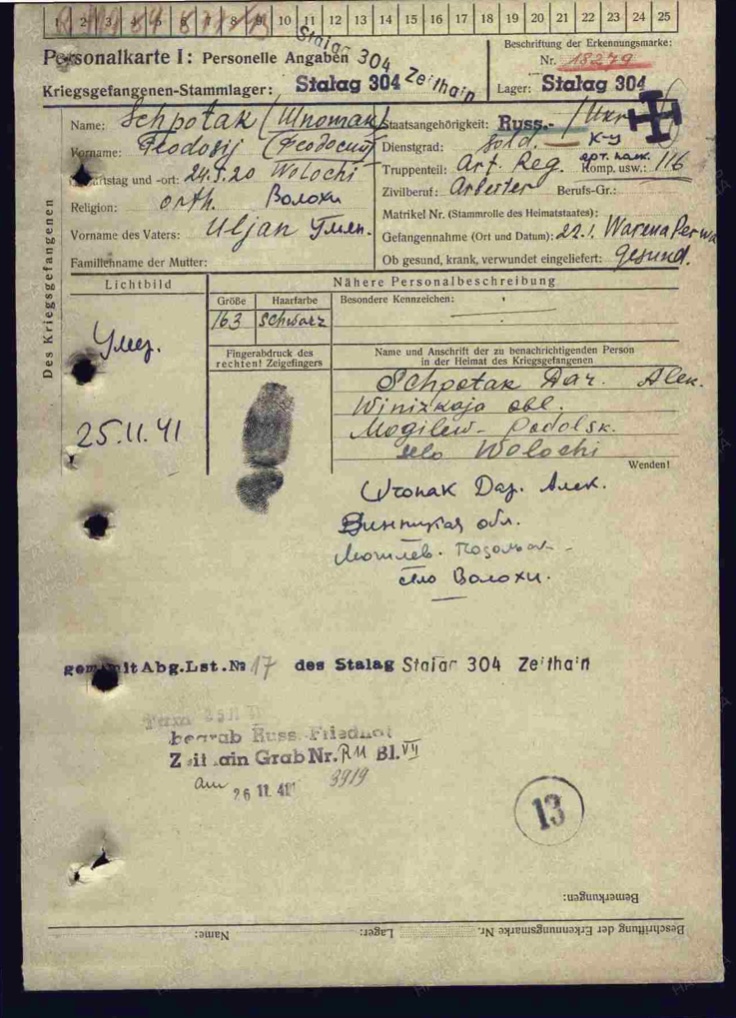 1 2 3 4 5 6 7 8 9 10 11 12 13 14 15 16 17 18 19 20 21 22 23 24 25
Personalkarte I: Personelle Angaben
Stalag 304 Zeithain
Beschriftung der Erkennungsmarke:
Nr. 18279
Kriegsgefangenen-Stammlager: Stalag 304
Lager: Stalag 304
Des Kriegsgefangenen
Name: Schpotak (Шпотак)
Vorname: Feodosij (Феодосий)
Geburtstag und -ort: 24.5.20 Wolochi
Religion: orth. Волохи
Vorname des Vaters: Uljan Ульян.
Familienname der Mutter:
Staatsangehörigkeit: Russ.- / Ukr
Dienstgrad: Sold. к-у
Truppenteil: Art. Reg. арт. полк. Komp. usw.: 116
Zivilberuf: Arbeiter Berufs-Gr.:
Matrikel Nr. (Stammrolle des Heimatstaates):
Gefangennahme (Ort und Datum): 22. Warena
Ob gesund, krank, verwundet eingeliefert: gesund.
Lichtbild
Nähere Personalbeschreibung
Größe Haarfarbe Besondere Kennzeichen:
163 schwarz
Fingerabdruck des
rechten! Zeigefingers
Name und Anschrift der zu benachrichtigenden Person
in der Heimat des Kriegsgefangenen
Умер.
25.11.41
Schpotak Dar. Alek.
Winizkaja obl.
Mogilew-Podolsk.
selo Wolochi
Wenden!
Шпотак Дар. Алек.
Винницкая обл.
Могилев. Подольск
село Волохи.
gem. mit Abg.Lst.№ 17 des Stalag Stalag 304 Zeithain
begrab Russ. Friedhof
Zeithain Grab Nr. R11 Bl. VII
am 26 11 41 3919
13
Bemerkungen:
Beschriftung der Erkennungsmarke Nr. Lager: Name: